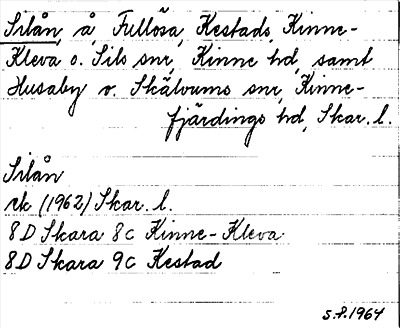 Silån, å, Fullösa, Kestads, Kinne-
Kleva o. Sils snr, Kinne hd, samt
Husaby o. Skälvums snr, Kinne-
fjärdings hd, Skar. l.
Silån
rk (1962) Skar. l.
8D Skara 8c Kinne-Kleva
8D Skara 9c Kestad
S.P. 1964